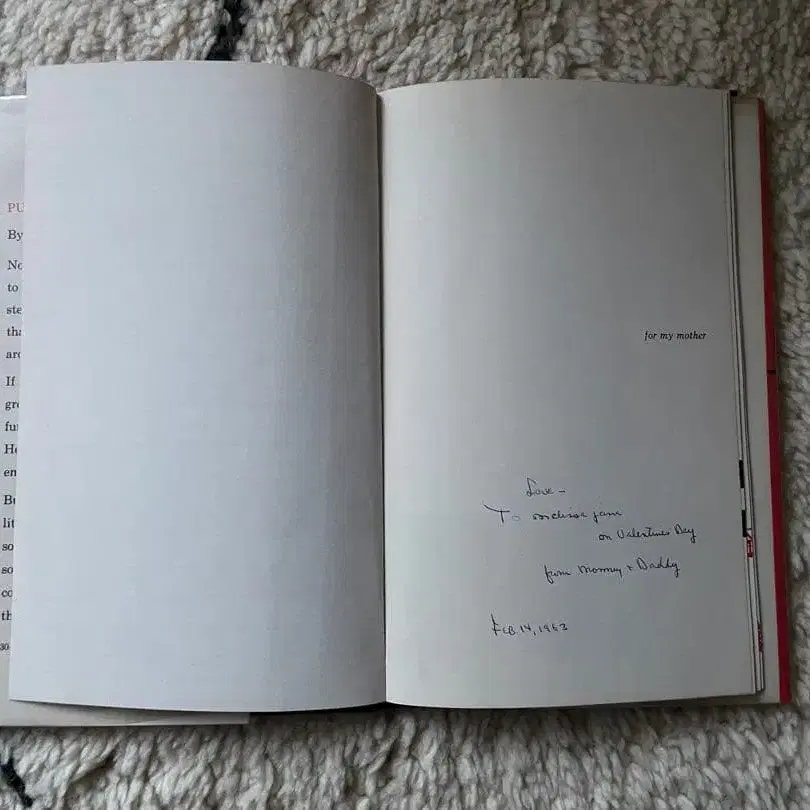 PU
By
No
to
ste
tha
are
If
gre
fu
He
en
Bu
lit
so
so
co
th
30
for my mother
Love –
To Jane
on Valentines Day
from Mommy + Daddy
Feb. 14, 1963